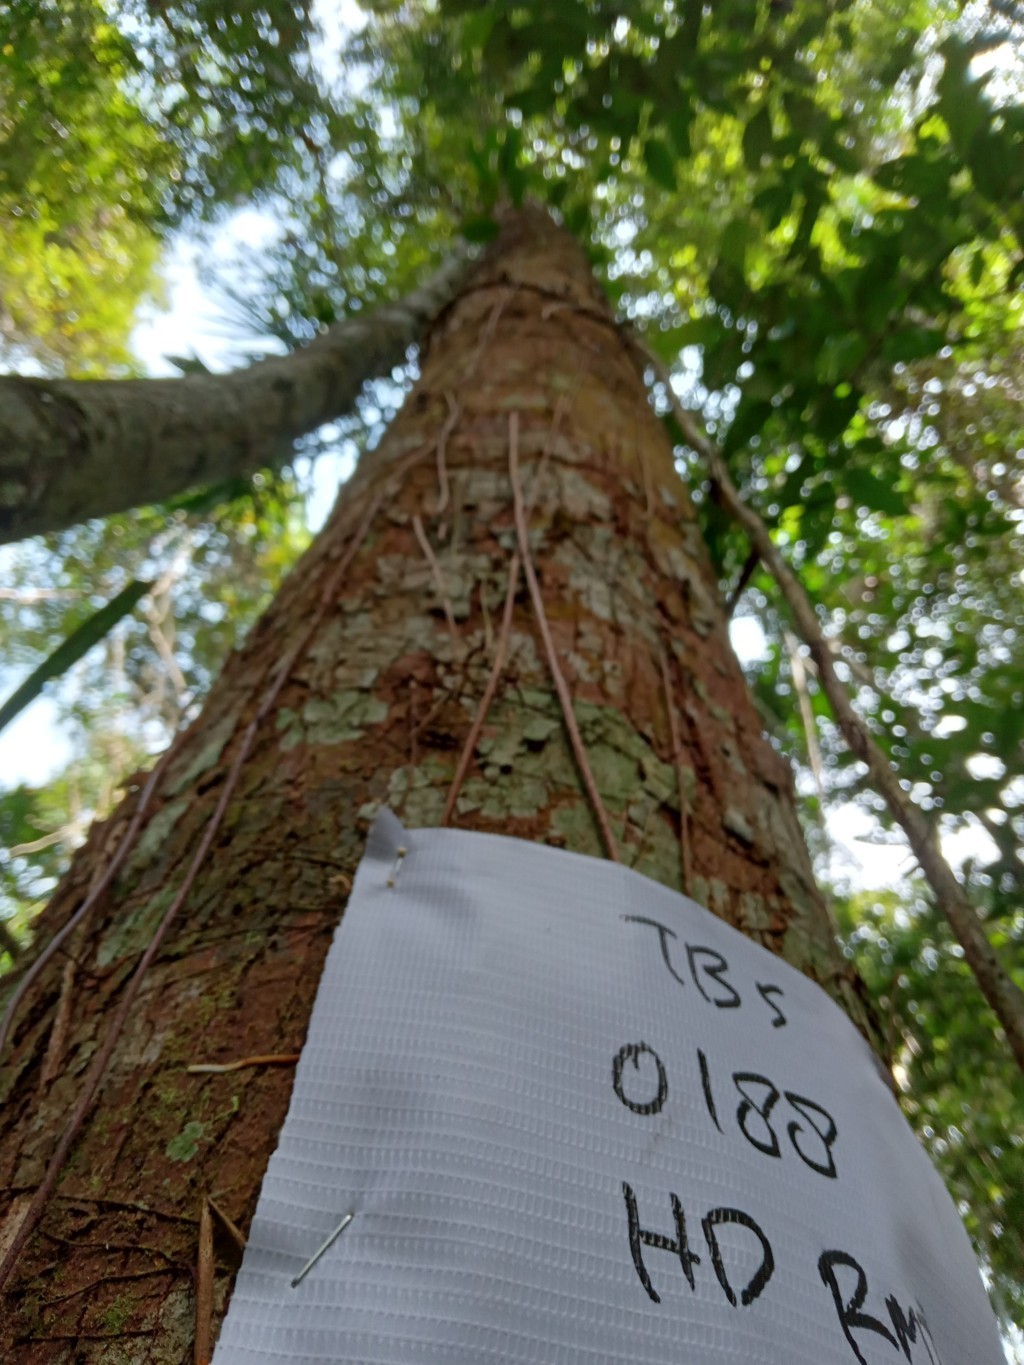 TBS
0188
HD